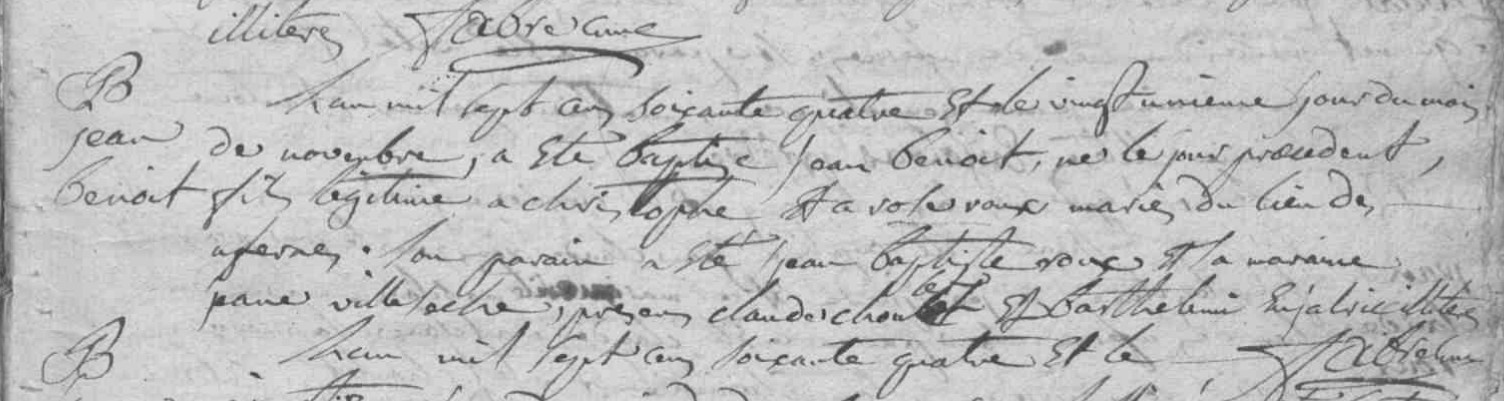 illiteres Fabre curé
B
jean
benoit
L'an mil sept cens soixante quatre et le vingt unieme jour du mois
de novembre, a eté baptisé jean benoit, né le jour précedent,
fils légitime a christophe et a rose roux mariés du lieu des
son parain a été jean baptiste roux et la maraine
villeseche, présens claude et barthelemi illiteres
B
L'an mil sept cens soixante quatre et le Fabre curé